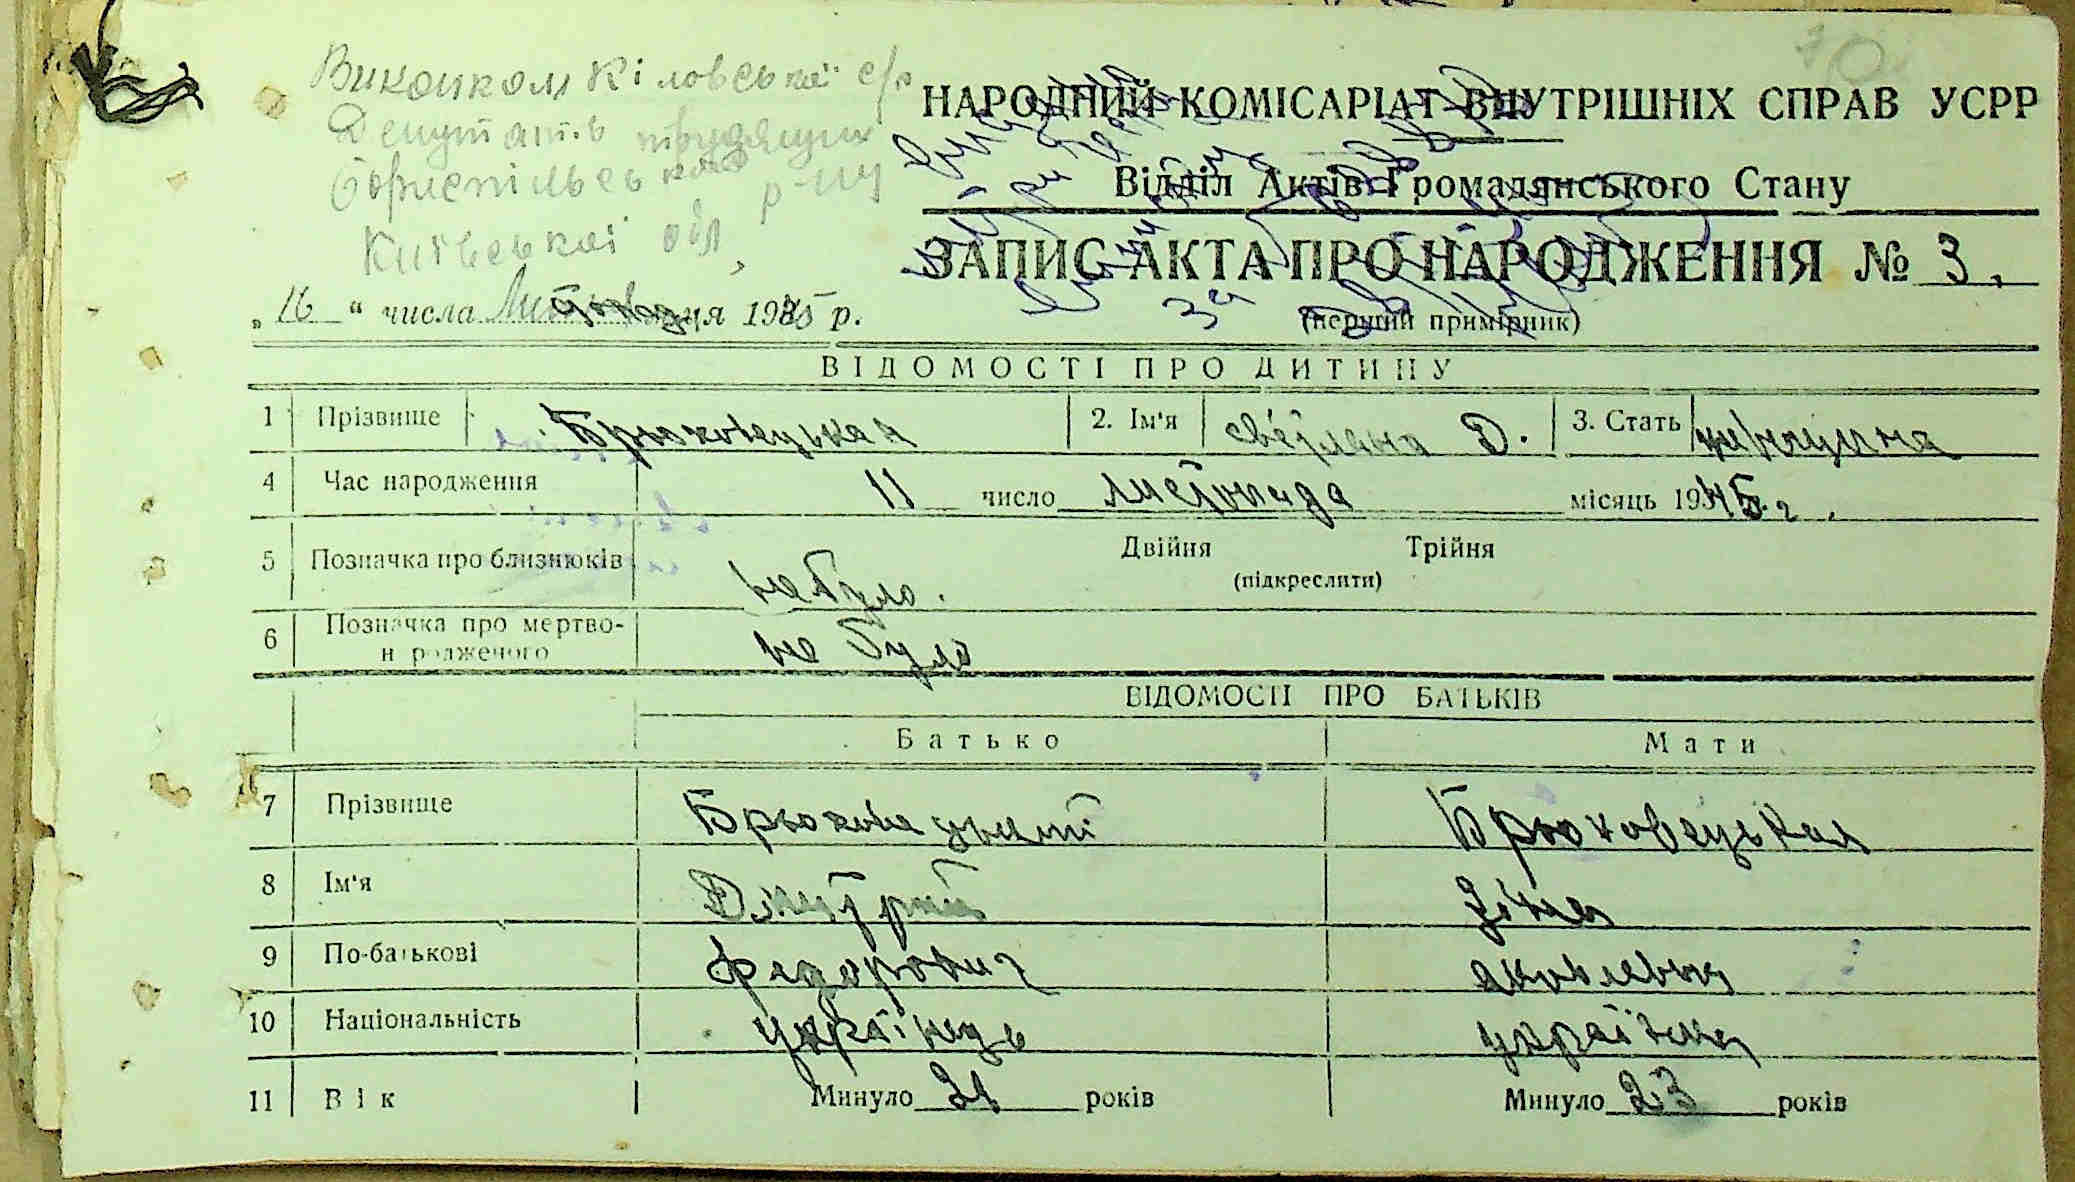 Виконком Кіловської с/р
Депутатів трудящих
Бориспільського р-ну
Київської обл,
НАРОДНИЙ КОМІСАРІАТ ВНУТРІШНІХ СПРАВ УСРР
Відділ Актів Громадянського Стану
ЗАПИС АКТА ПРО НАРОДЖЕННЯ № 3.
(перший примірник)
„ 16 “ числа 1945 р.
ВІДОМОСТІ ПРО ДИТИНУ
1 Прізвище Брюховецькая 2. Ім'я Светлана Д. 3. Стать женщина
4 Час народження 11 число листопада місяць 1945 г.
5 Позначка про близнюків не було. Двійня Трійня
(підкреслити)
6 Позначка про мертво-
народженого не було
ВІДОМОСТІ ПРО БАТЬКІВ
Батько Мати
7 Прізвище Брюховецький Брюховецькая
8 Ім'я Дмитрий Зіна
9 По-батькові Федорович Яковлевна
10 Національність українець українка
11 Вік Минуло 21 років Минуло 23 років